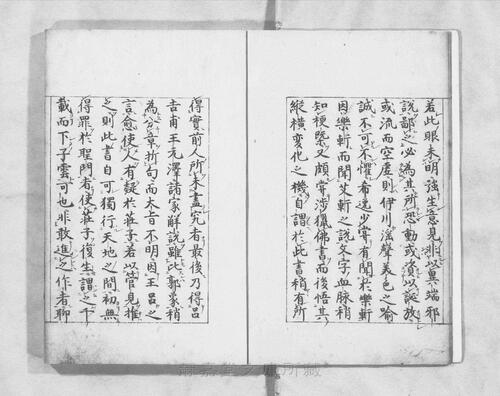 若此眼未明強生意見非以異端邪
説鄙之必為其所恐動或資以誕放
或流而空虚則伊川淫聲美色之喩
誠不可不懼希逸少嘗有聞於樂軒
因樂軒而聞艾軒之説文字血脉稍
知梗槩又頗嘗渉猟佛書而後悟其
縦横変化之機自謂於此書稍有所
得實前人所未盡究者最後乃得呂
吉甫王元澤諸家解説雖比郭象稍
為分章析句而大旨不明因王呂之
言愈使人有疑於荘子若以管見推
之則此書自可獨行天地之間初無
得罪於聖門者使荘子復生謂之千
載而下子雲可也非敢進之作者聊